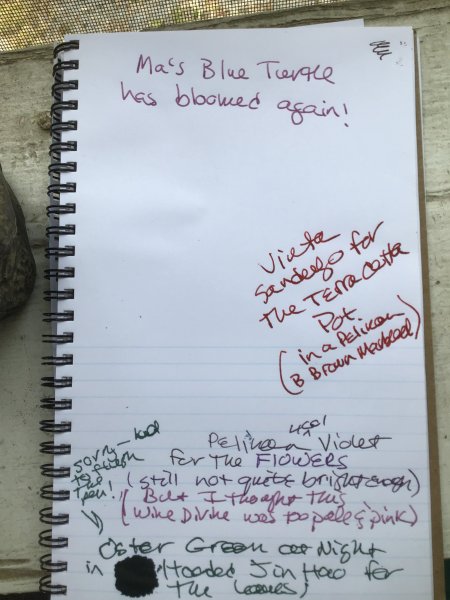 Ma's Blue Turtle
has bloomed again!
Vinta
sandeego for
the Terra Cotta
Pot
(in a Pelikan
B Brown Marbled)
used
Pelikan Violet
for the FLOWERS
(still not quite bright enough)
(But I thought this
Wine Divine was too pale & pink)
sorry - had
to
pen!
Oster Green at Night
in Hooded Jin Hao for
the leaves)